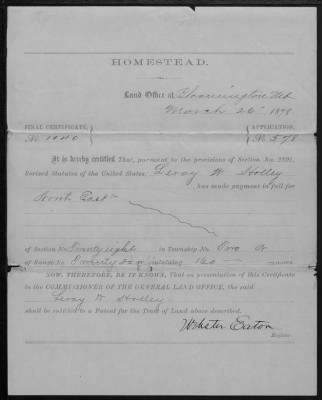 HOMESTEAD.
Land Office at Bloomington Neb
March 26 1879
FINAL CERTIFICATE, APPLICATION,
No. 1040 No. 578
It is hereby certified That, pursuant to the provisions of Section No. 2291,
Revised Statutes of the United States, Leroy W Holley
has made payment in full for
North East
of Section No. Twenty eight in Township No. Two N
of Range No. containing 160
NOW, THEREFORE, BE IT KNOWN, That on presentation of this Certificate
to the COMMISSIONER OF THE GENERAL LAND OFFICE, the said
Leroy W Holley
shall be entitled to a Patent for the Tract of Land above described.
Webster Eaton
Register.